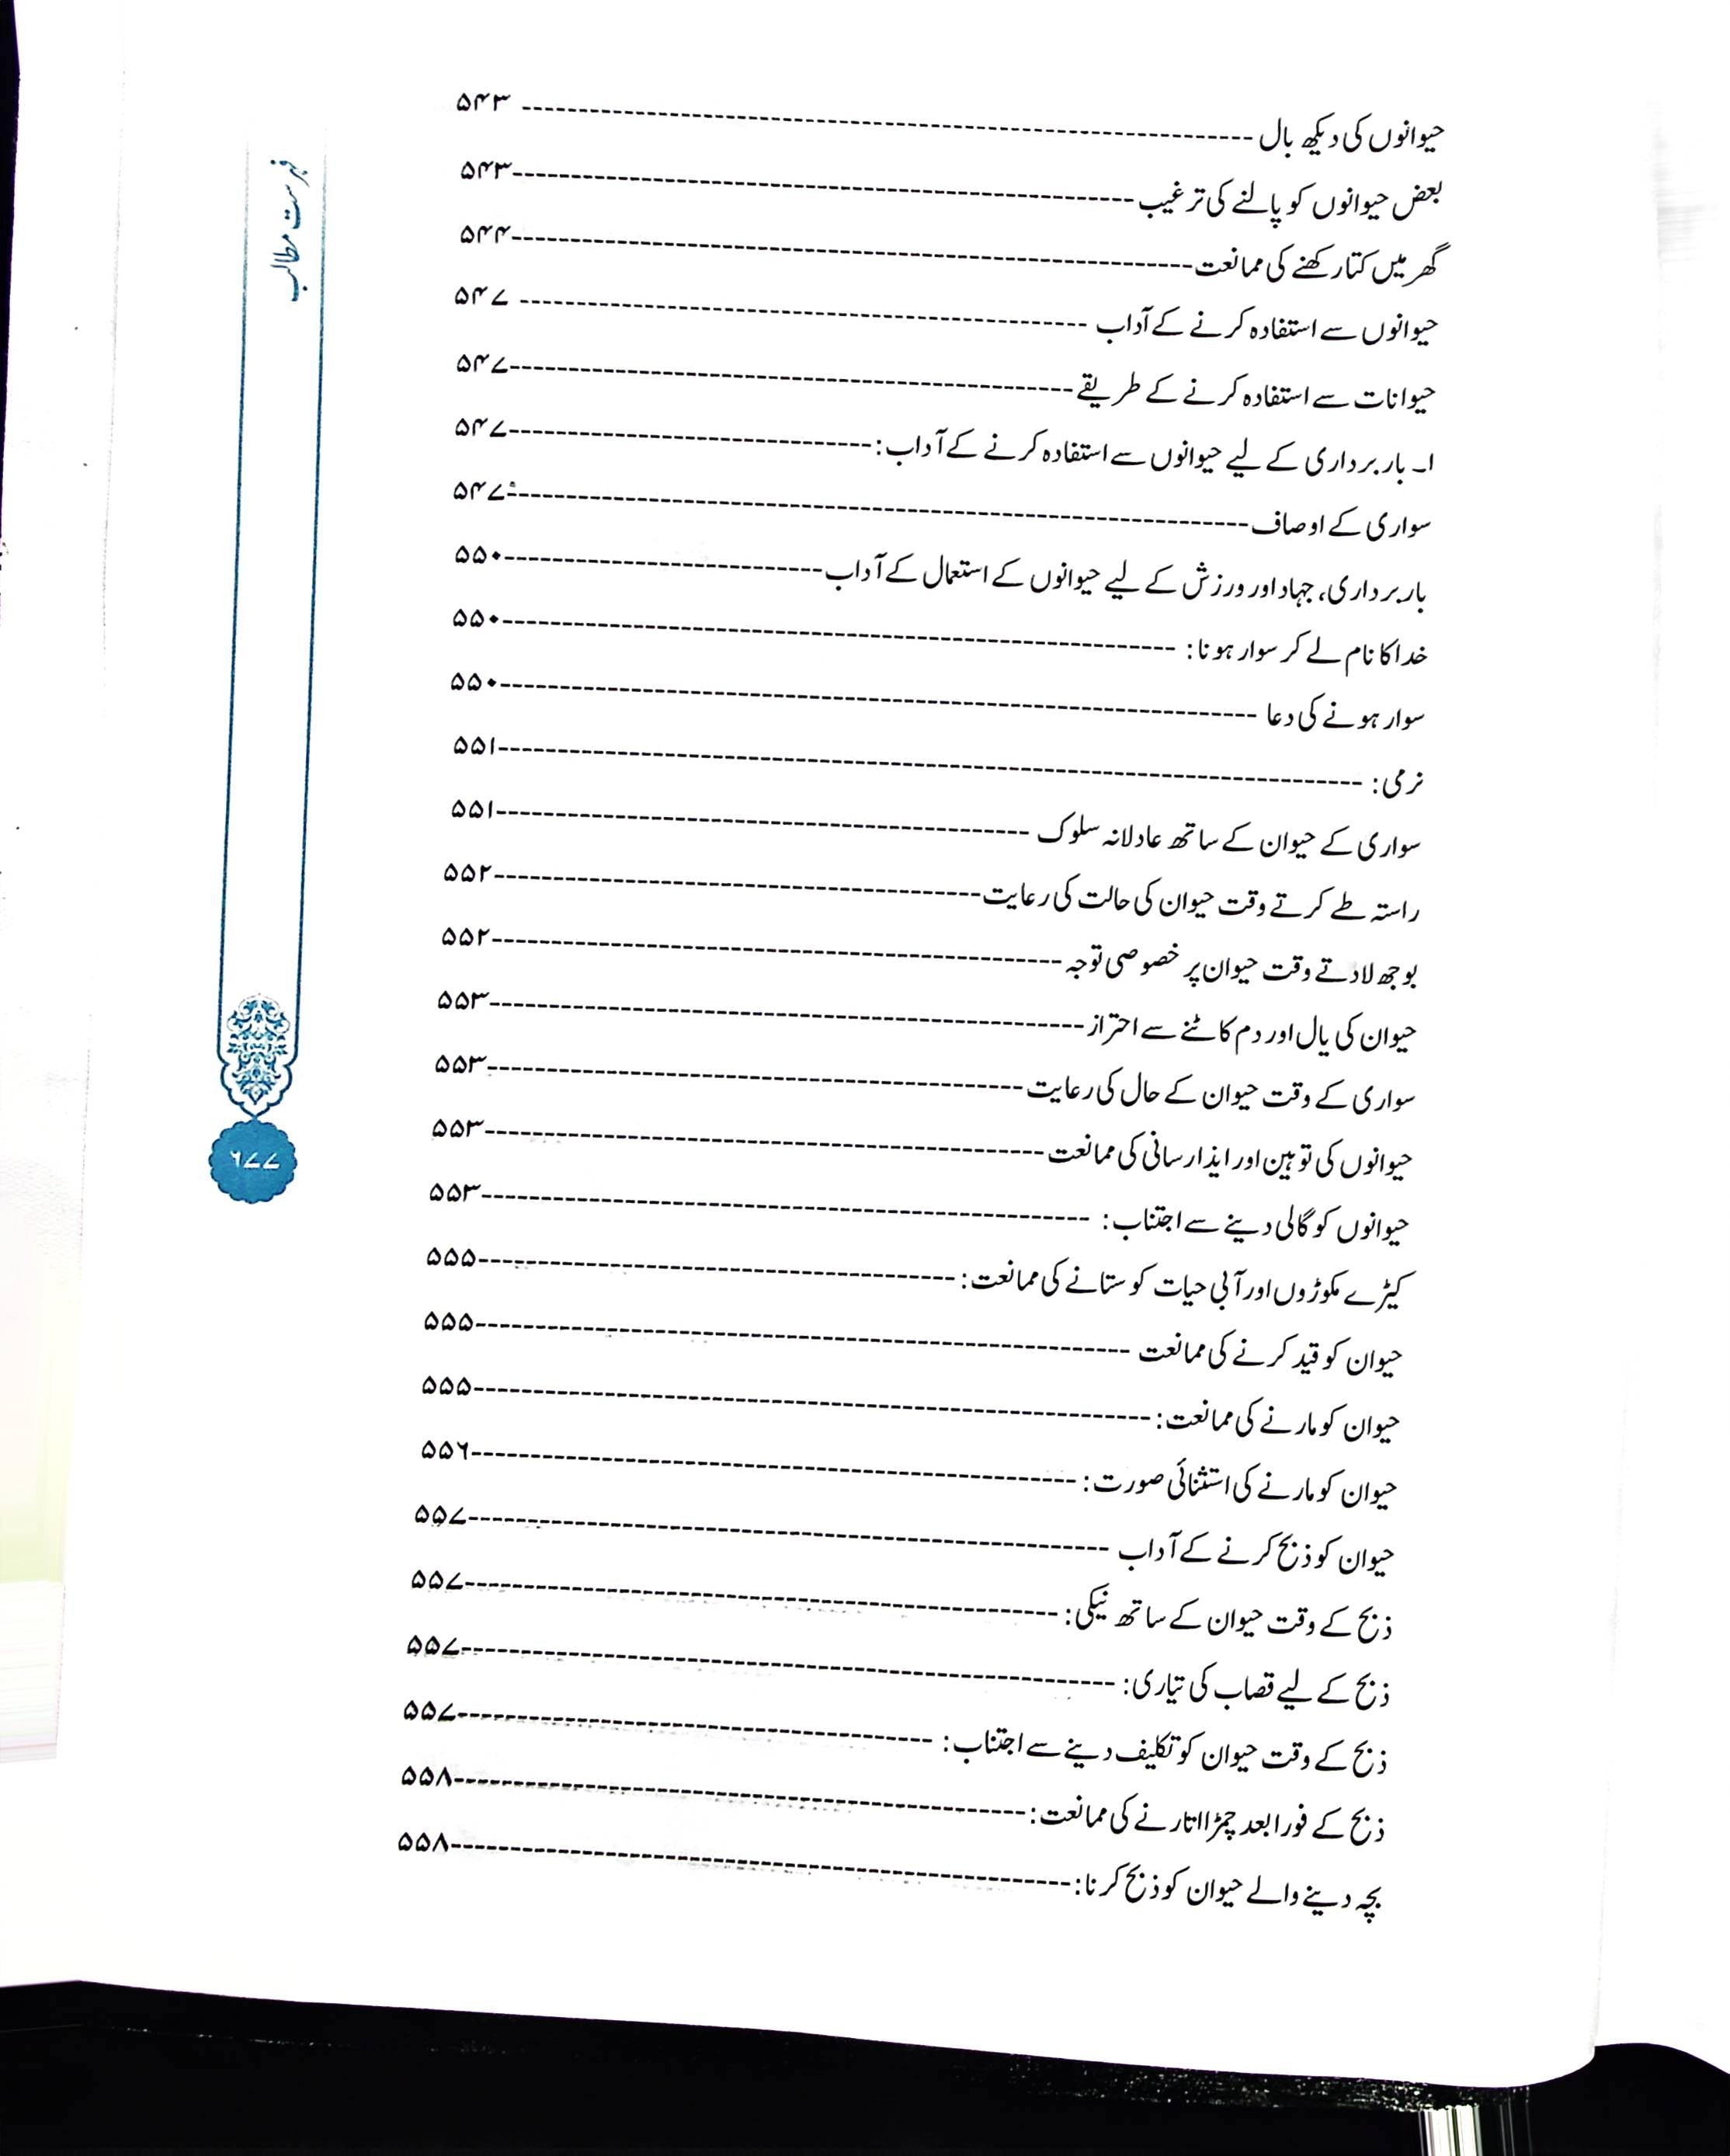 حیوانوں کی دیکھ بال ---------- ۵۴۳
بعض حیوانوں کو پالنے کی ترغیب ---------- ۵۴۳
گھر میں کتا رکھنے کی ممانعت ---------- ۵۴۴
حیوانوں سے استفادہ کرنے کے آداب ---------- ۵۴۷
حیوانات سے استفادہ کرنے کے طریقے ---------- ۵۴۷
۱۔ بار برداری کے لیے حیوانوں سے استفادہ کرنے کے آداب: ---------- ۵۴۷
سواری کے اوصاف ---------- ۵۴۷
بار برداری، جہاد اور ورزش کے لیے حیوانوں کے استعمال کے آداب ---------- ۵۵۰
خدا کا نام لے کر سوار ہونا: ---------- ۵۵۰
سوار ہونے کی دعا ---------- ۵۵۰
نرمی: ---------- ۵۵۱
سواری کے حیوان کے ساتھ عادلانہ سلوک ---------- ۵۵۱
راستہ طے کرتے وقت حیوان کی حالت کی رعایت ---------- ۵۵۲
بوجھ لادتے وقت حیوان پر خصوصی توجہ ---------- ۵۵۲
حیوان کی یال اور دم کاٹنے سے احتراز ---------- ۵۵۳
سواری کے وقت حیوان کے حال کی رعایت ---------- ۵۵۳
حیوانوں کی توہین اور ایذا رسانی کی ممانعت ---------- ۵۵۳
حیوانوں کو گالی دینے سے اجتناب: ---------- ۵۵۳
کیڑے مکوڑوں اور آبی حیات کو ستانے کی ممانعت: ---------- ۵۵۵
حیوان کو قید کرنے کی ممانعت ---------- ۵۵۵
حیوان کو مارنے کی ممانعت: ---------- ۵۵۵
حیوان کو مارنے کی استثنائی صورت: ---------- ۵۵۶
حیوان کو ذبح کرنے کے آداب ---------- ۵۵۷
ذبح کے وقت حیوان کے ساتھ نیکی: ---------- ۵۵۷
ذبح کے لیے قصاب کی تیاری: ---------- ۵۵۷
ذبح کے وقت حیوان کو تکلیف دینے سے اجتناب: ---------- ۵۵۷
ذبح کے فورا بعد چمڑا اتارنے کی ممانعت: ---------- ۵۵۸
بچہ دینے والے حیوان کو ذبح کرنا: ---------- ۵۵۸
فہرست مطالب
۶۷۷